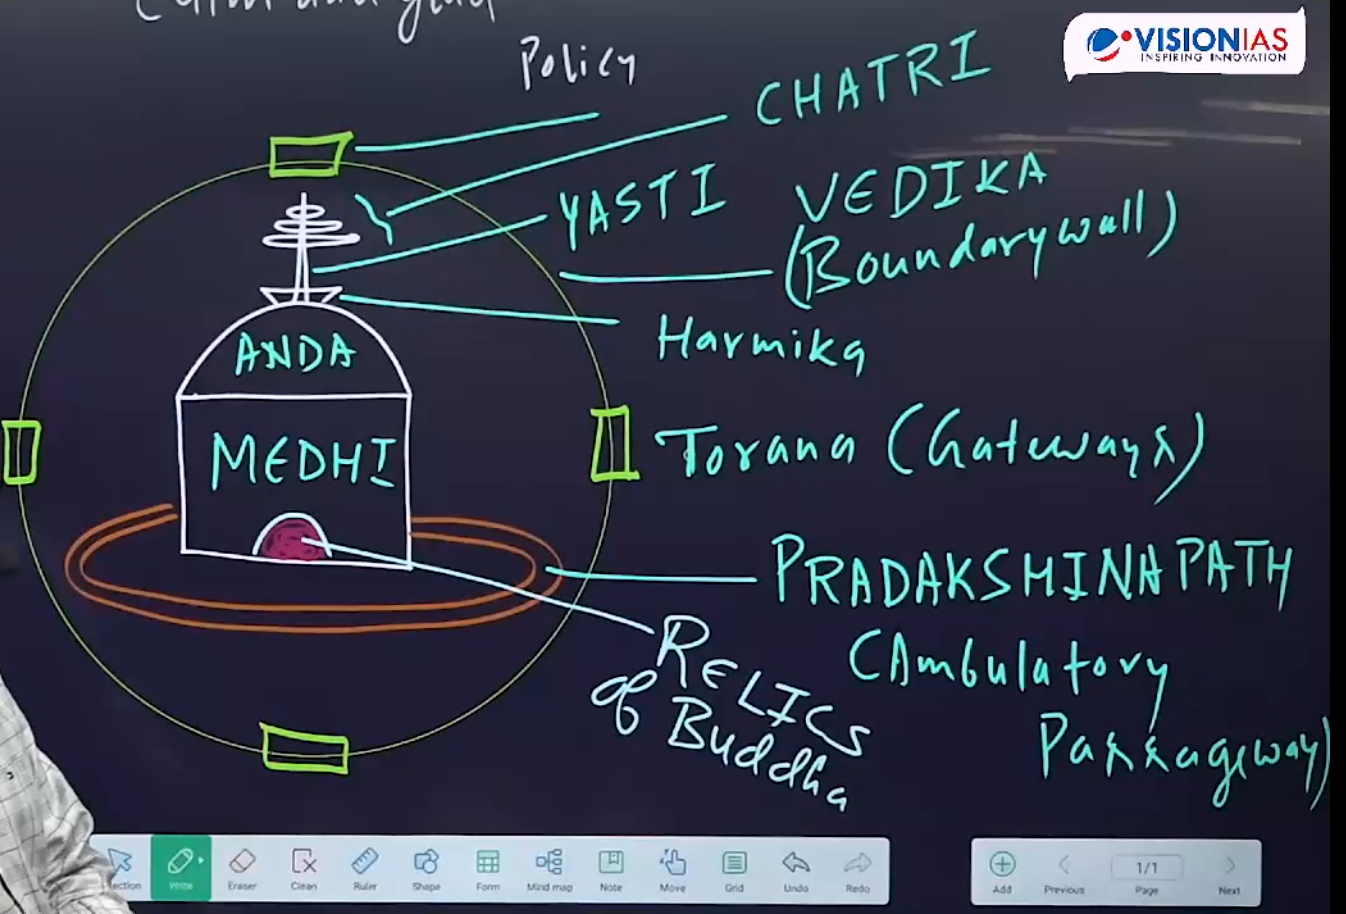 Policy
VISIONIAS
INSPIRING INNOVATION
CHATRI
YASTI
VEDIKA
(Boundarywall)
Harmika
ANDA
MEDHI
Torana (Gateways)
PRADAKSHINAPATH
(Ambulatory
Passageway)
RELICS
of Buddha
Write
Eraser
Clean
Ruler
Shape
Form
Mind map
Note
Move
Grid
Undo
Redo
Add
Previous
1/1
Page
Next